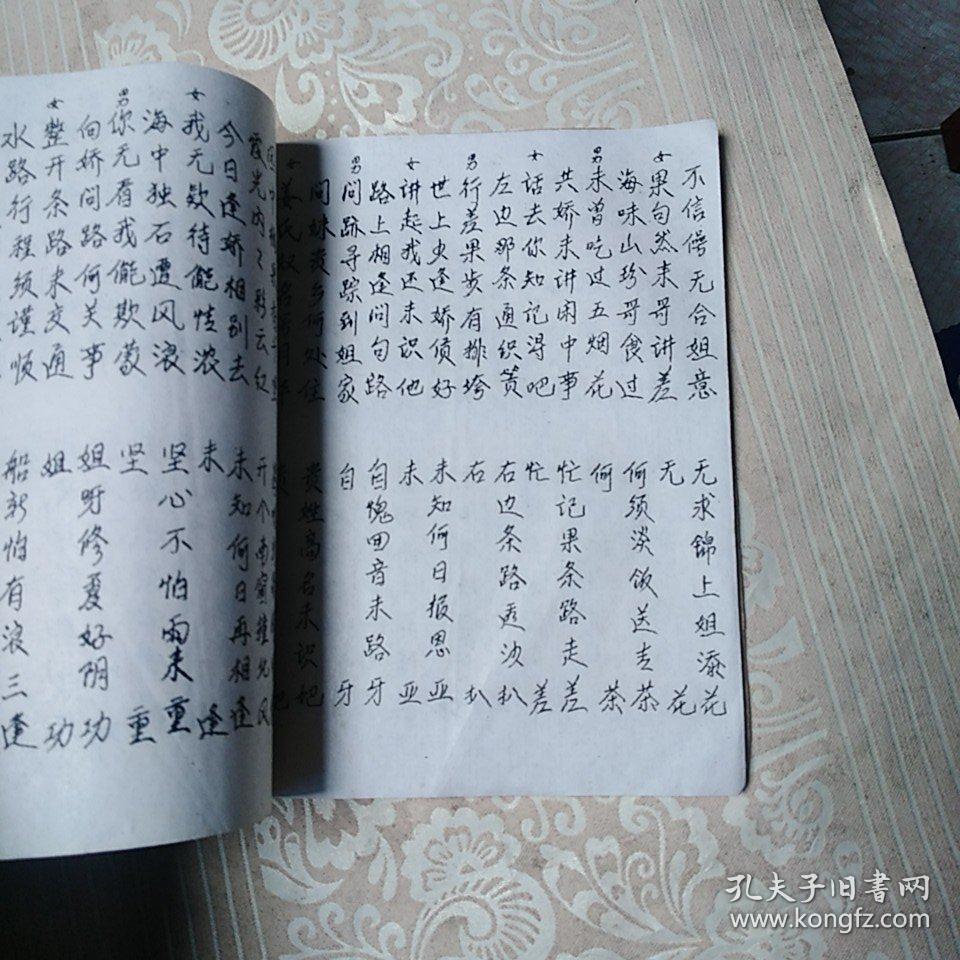 不信偒无合姐意
无求锦上姐添花
无
花
女
果句然来哥讲差
海味山珍哥食过
何须淡饭送壶茶
何
茶
男
未曾吃过五烟花
共娇未讲闲中事
忙记果条路走差
忙
差
女
话去你知记得吧
左边那条通织篢
右边条路透沙扒
右
扒
男
行差果步有排垮
世上央逢娇债好
未知何日报恩亚
未
亚
女
讲起我还未识他
路上相逢问句路
自愧回音未路牙
自
牙
男
问跡寻踪到姐家
问妹贵乡何处住
贵姓高名未识妑
女
霞光内之彩云红
今日逢娇相别去
未知何日再相逢
未
逢
女
我无欸待能情浓
海中独石遭风浪
坚心不怕雨来重
坚
重
男
你无看我能欺蒙
向娇问路何关事
姐呀修夏好阴功
姐
功
女
整开条路未交通
水路行程须谨顺
船新怕有浪三逢
孔夫子旧书网
www.kongfz.com